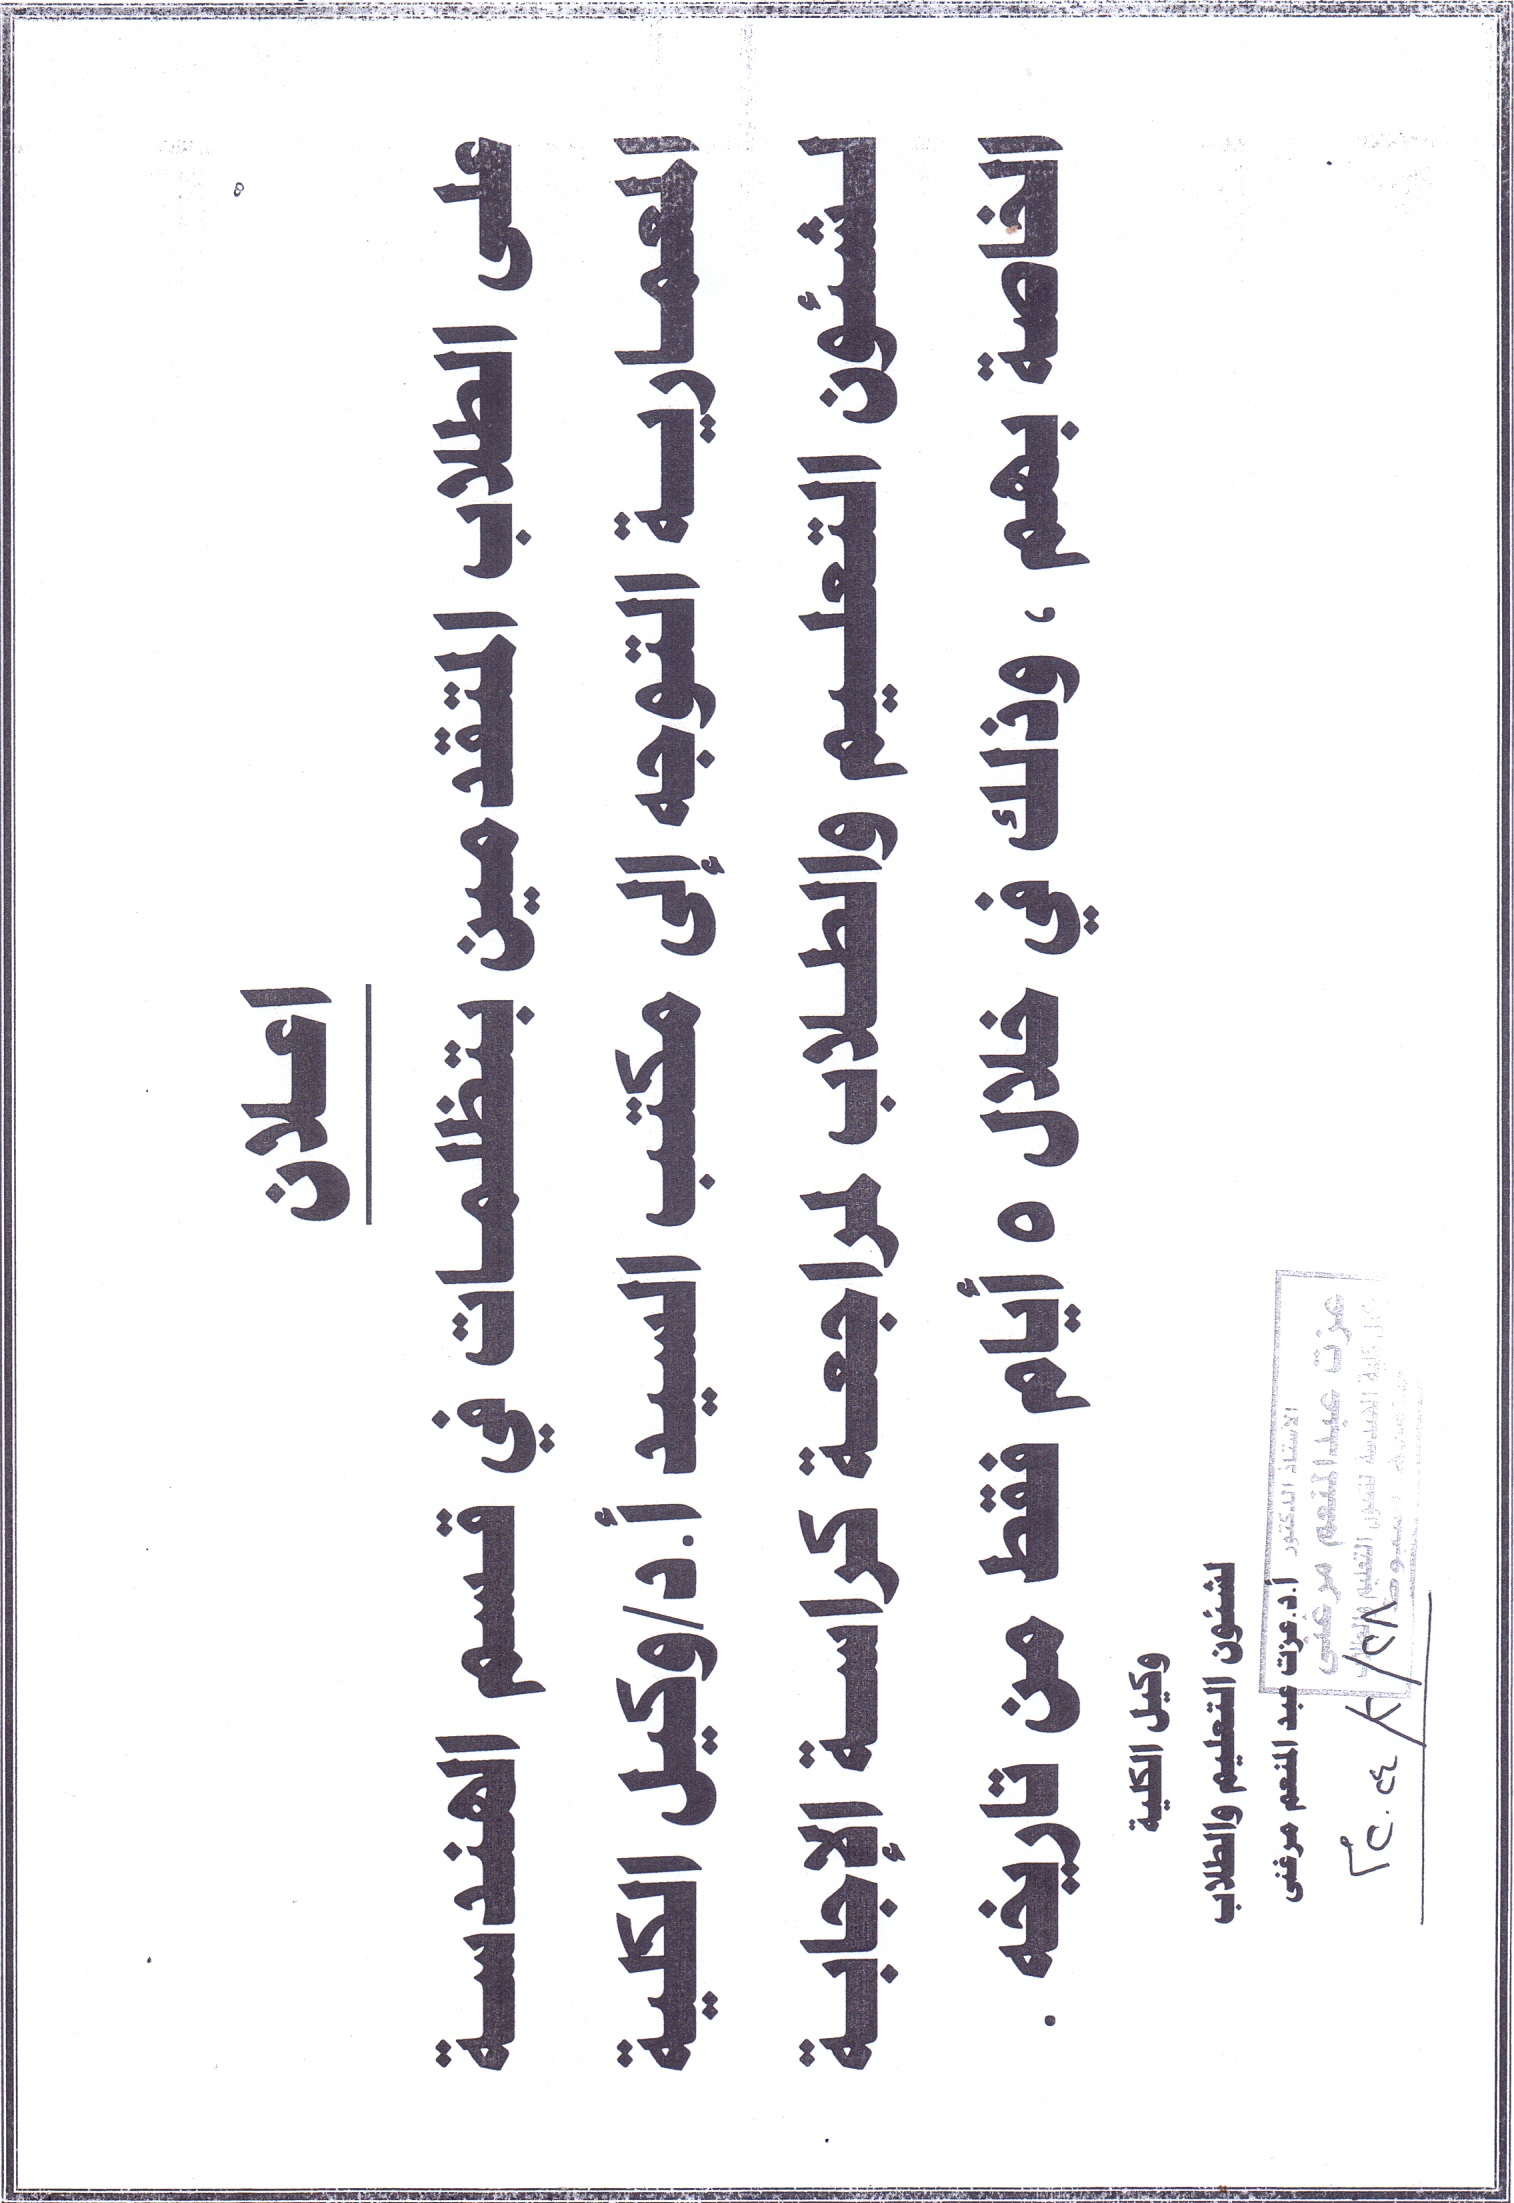 اعلان
على الطلاب المتقدمين بتظلمات في قسم الهندسة
المعمارية التوجه إلى مكتب السيد أ.د/وكيل الكلية
لشئون التعليم والطلاب لمراجعة كراسة الإجابة
الخاصة بهم ، وذلك في خلال ٥ أيام فقط من تاريخه .
وكيل الكلية
لشئون التعليم والطلاب
أ.د.عزت عبد المنعم مرغنى
الاستاذ الدكتور
عزت عبد المنعم مرغنى